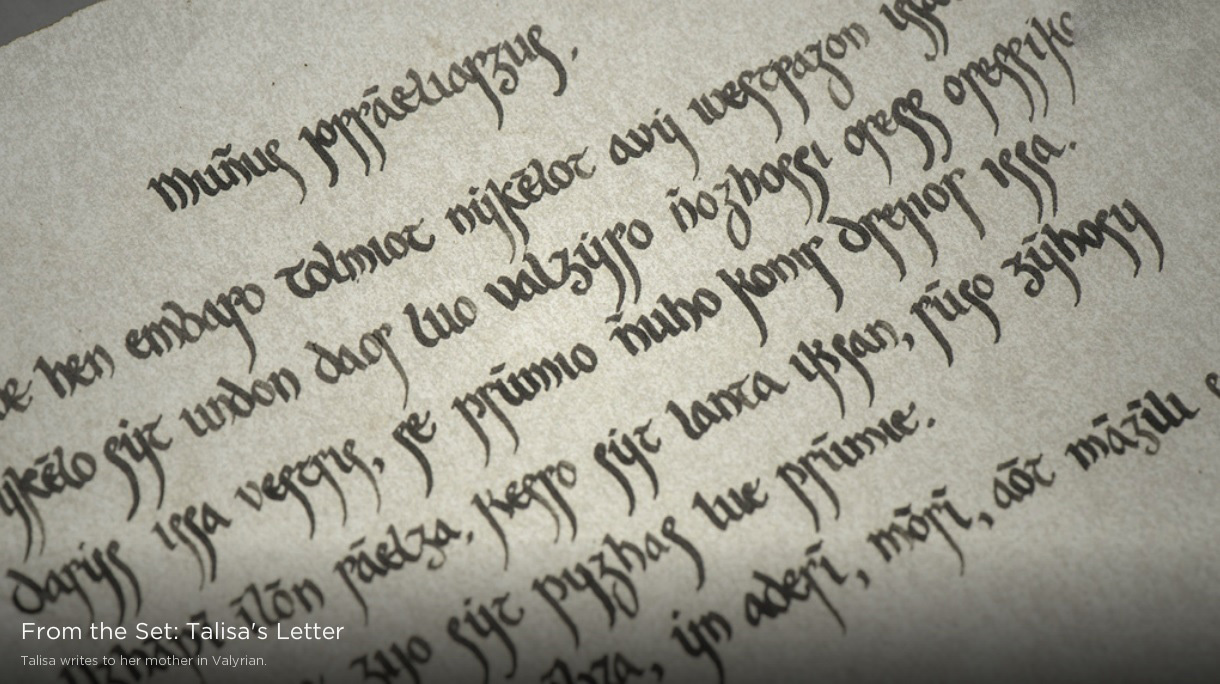 Muñus jorrāeliarzus,
hen embaro tolmiot nykēlot avy westrazon
syt undon daor luo valzȳro ñozhossi oress
darys issa vestris, se prūmio ñuho konir drējior issa.
īlōn rāelza. Kesso syt lanta iksan, rūso zȳhosy
zȳho syt pyzhas lue prūmie.
yn aderī, mōrī, aōt māzīlu
From the Set: Talisa's Letter
Talisa writes to her mother in Valyrian.